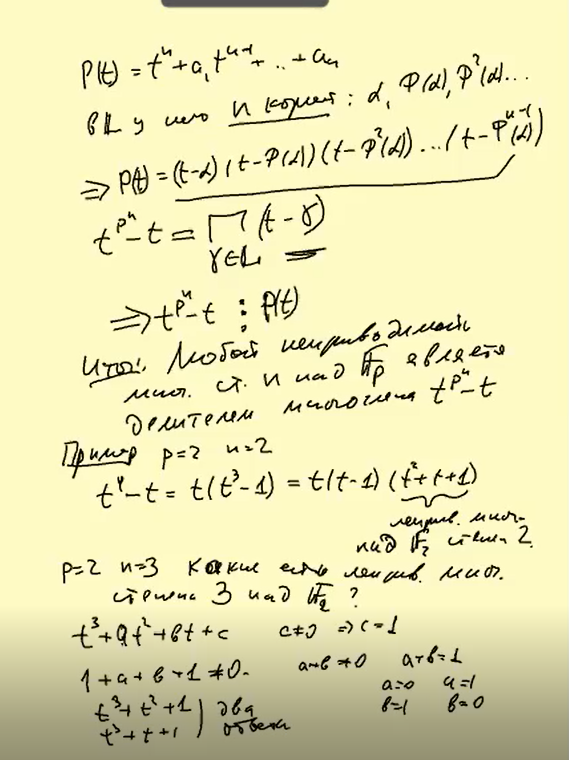 P(t) = tⁿ + a₁tⁿ⁻¹ + .. + aₙ
в L у него n корней : α, Φ(α), Φ²(α)...
⇒ P(t) = (t-α)(t-Φ(α))(t-Φ²(α))...(t-Φⁿ⁻¹(α))
t^{pⁿ} - t = ∏_{γ∈L} (t-γ)
⇒ t^{pⁿ} - t ⋮ P(t)
Итог: Любой неприводимый
мног. ст. n над 𝔽ₚ является
делителем многочлена t^{pⁿ} - t
Пример p=2 n=2
t⁴ - t = t(t³-1) = t(t-1)(t²+t+1)
неприв. мног.
над 𝔽₂ степени 2.
p=2 n=3 Какие есть неприв. мног.
степени 3 над 𝔽₂ ?
t³ + at² + bt + c c≠0 ⇒ c=1
1 + a + b + 1 ≠ 0. a+b≠0 a+b=1
a=0 a=1
b=1 b=0
t³ + t² + 1 два
t³ + t + 1